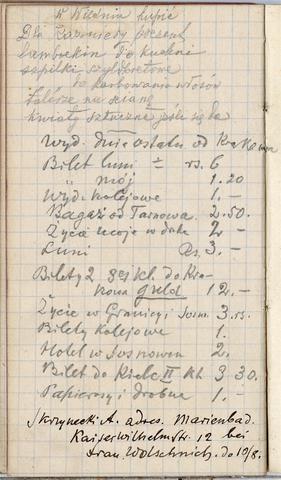 W Wiedniu kupić
Dla Kazimiery prezent
Lambrekin do kuchni
szpilki szyldkretowe
do karbowania włosów
talerze na ścianę
kwiaty sztuczne jeśli są ła
Wyd. dnia ostatn. od Krakowa
Bilet Luni ÷ rs. 6
" mój 1.20
Wyd. kolejowe 1.—
Bagaż od Tarnowa. 2.50.
Życie moje w dr 2 —
Luni Rs. 3.—
Bilety 2 3ej kl. do Kra-
kowa guld 12.—
Życie w Granicy i Sosn. 3.rs.
Bilety kolejowe 1.
Hotel w Sosnowcu 2.
Bilet do Kielc II kl. 3 30.
Papierosy i drobne 1.—
Skrzynecki A. adres. Marienbad.
Kaiser Wilhelmstr. 12 bei
Frau. Wolschnich. do 10/8.